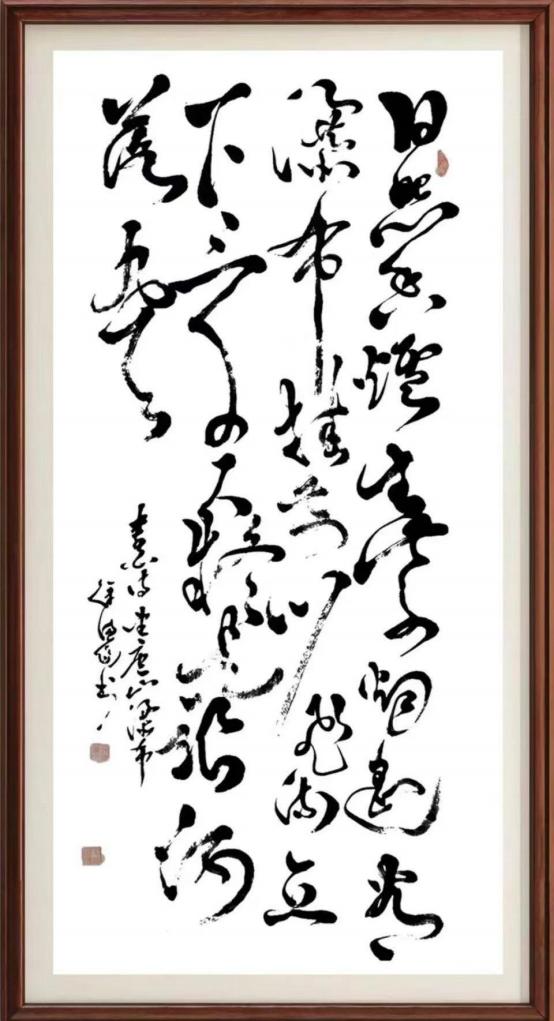 日照香爐生紫烟遥看
瀑布挂前川飛流直
下三千尺疑是銀河
落九天
李白诗望庐山瀑布
徐书